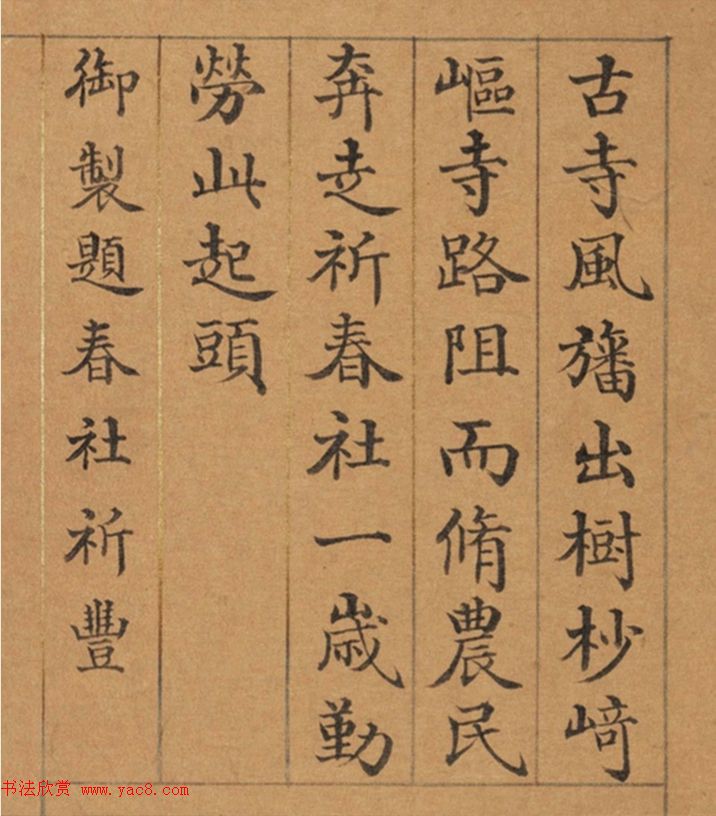 古寺風旛出樹杪﨑
嶇寺路阻而脩農民
奔走祈春社一歲勤
勞此起頭
御製題春社祈豐
书法欣赏 www.yac8.com